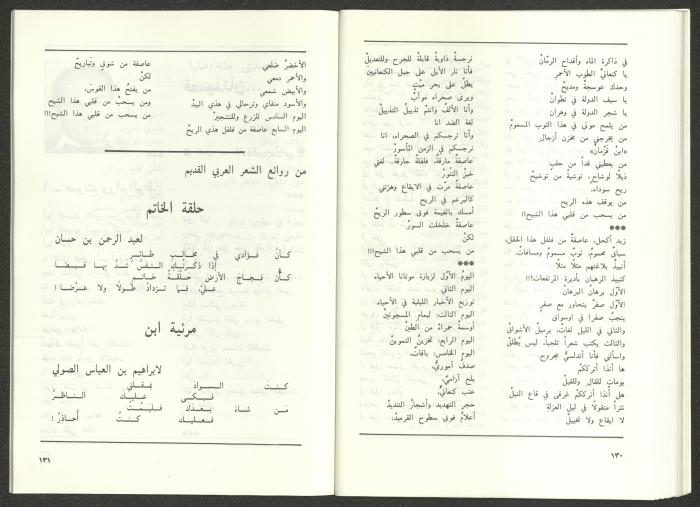 في ذاكرة الماء وأقداح الرمّانْ
يا كنعانيّ الطوب الأحمر
وحدك عوسجةٌ ومديحْ
يا سيف الدولة في تطوانْ
يا شجر الدولة في وهران
من يلمح موتي في هذا الثوب المسمومْ
من يخرجني من مخزن أزجالِ
«ابنِ قُزْمانِ»
من يعطيني قداً من حلبٍ
ذيلاً لوشاحٍ، توشيةً من توشيحْ
ريح سوداء،
من يوقف هذه الريح
من يسحب من قلبي هذا الشيح!!
***
زبد أكحل، عاصفةٌ من فلفل هذا الحقل،
سباقٌ محمومٌ، ثوبٌ مسمومٌ ومسافاتْ.
أنبيذٌ بلاغتهم مثلاً مثلا
كنبيذ الرهبان بأديرة المرتفعات!!!
الأوّل برهانُ البرهانْ
الأوّل صفرٌ يتحاور مع صفرٍ
ينجبُ صفرا في اوسوانْ
والثاني في الليل لغاتٌ، برميلُ الأشواقْ
والثالث يكتب شعراً ثلجياً، ليس يُطاقْ
واسألني فأنا أندلسيٌّ مجروح.
ها أنذا أتركُكمْ
يوماتٍ للقال وللقيلْ
هل أنذا أترككم غرقى في قاع النيلْ
نثراً منقولًا في ليل العزلةِ
لا ايقاع ولا تخييلْ
نرجسةً ذاويةً قابلةً للجرح وللتعديلْ
فأنا نار الأيل على جبل الكنعانيين
يطلّ على بحر ميّتْ
ويرى صحراء موآبْ
وأنا الألفُ وأنتم تذييلُ التذييلْ
لغة الضد انا
وأنا نرجسكم في الصحراء، انا
نرجسكم في الزمن المأسورْ
عاصفةٌ مارقةٌ، فلفلةٌ حارقةٌ، لغتي
خبزُ التنّورْ
عاصفةٌ مرّت في الايقاع وهزتني
كالبرعم في الريح
أمسك بالغيمة فوق سطور الريحْ
عاصفةٌ خلخلت السورْ
لكنْ
من يسحب من قلبي هذا الشيح!!!
***
اليومُ الأوّل لزيارة موتانا الأحياء
اليوم الثاني
توزيع الأخبار الليلية في الأحياء
اليوم الثالث: ليمامٍ المسجونينْ
أوسمةٌ حمراءُ من الطينْ
اليوم الرابع: لتخزين التموينْ
اليوم الخامس: باقاتٌ،
صدفٌ أموريٌّ،
بلح آراميّ،
عنب كنعانيٌّ،
حجر التهديد وأشجارُ التنديدْ
أعلامٌ فوق سطوح القرميد:
١٣٠
الأخضرُ ضلعي
والأحمر دمعي
والأبيض شمعي
والأسود منفاي وترحالي في هذي البيدْ
اليوم السادس للزرع وللتشجيرْ
اليوم السابع عاصفة من فلفل هذي الريحْ
عاصفة من شوقٍ وتباريحْ
لكنْ
من يفتحُ هذا القوسَ،
ومن يسحبُ من قلبي هذا الشيح
من يسحب من قلبي هذا الشيح!!!
من روائع الشعر العربي القديم
حلقة الخاتم
لعبد الرحمن بن حسان
كـأنّ فـؤادي في مخـالـب طـائـرٍ
إذا ذكرتـك النفسُ شُـدَّ بهـا قـبـضـا
كـأنّ فـجـاجَ الأرض حـلقـةُ خـاتـم
علـيّ، فـمـا تـزدادُ طـولًا ولا عـرْضـا!
مرثية ابن
لابراهيم بن العباس الصولي
كـنـتَ السـوادَ بمـقـلتـي
فـبـكـى عـلـيـك النـاظـرُ
مـن شـاءَ بـعـدك فـلـيَـمُـتْ
فـعـلـيـك كـنـتُ أُحـاذرُ!
١٣١